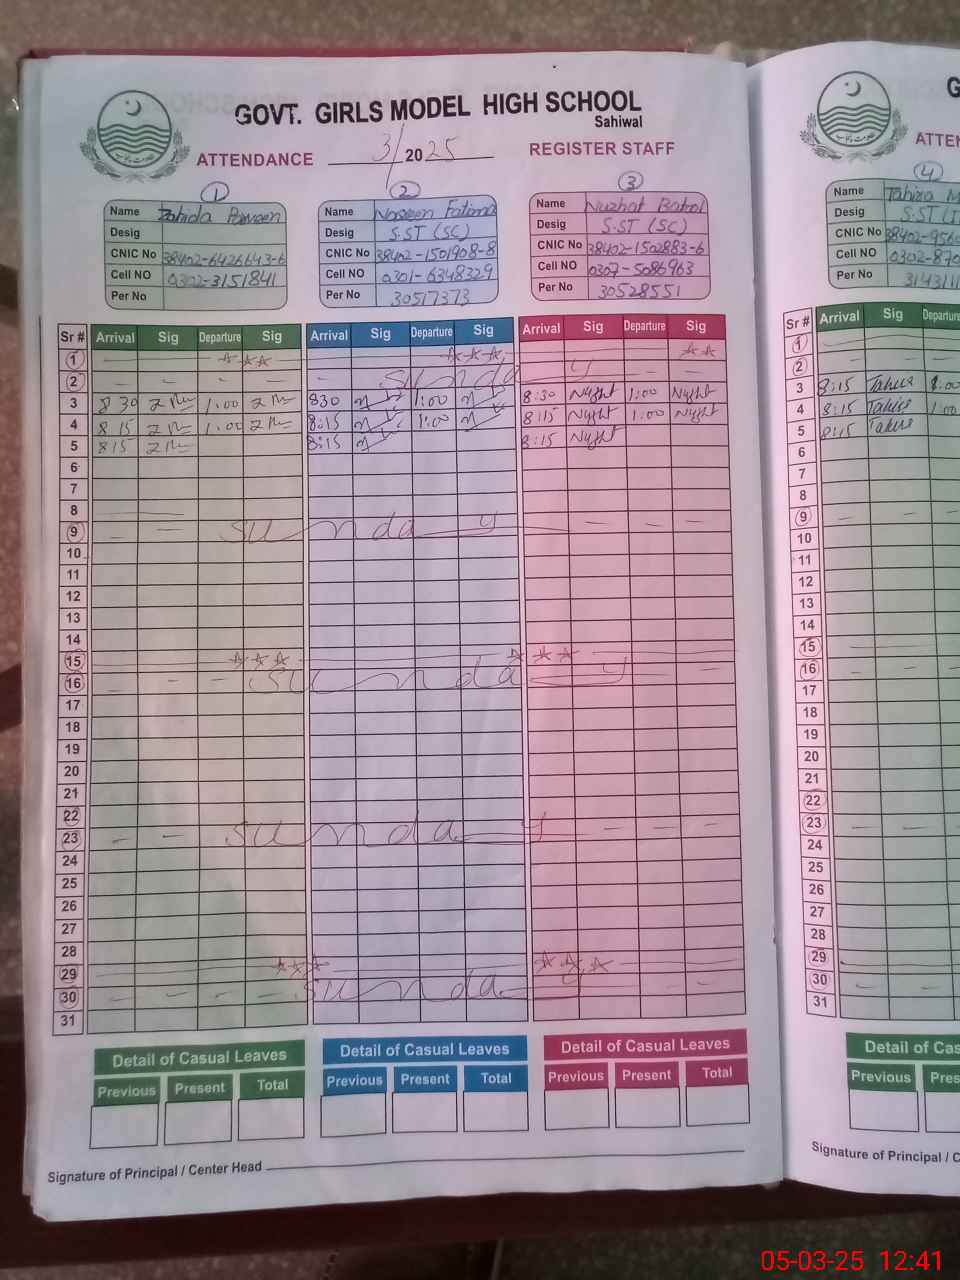 GOVT. GIRLS MODEL HIGH SCHOOL
Sahiwal
ATTENDANCE 3/2025 REGISTER STAFF
1
Name Zahida Parveen
Desig
CNIC No 38402-6426643-6
Cell NO 0302-3151841
Per No
2
Name Nasreen Fatima
Desig S.ST (SC)
CNIC No 38402-1501908-8
Cell NO 0301-6348329
Per No 30517373
3
Name Nuzhat Batool
Desig S.ST (SC)
CNIC No 38402-1502883-6
Cell NO 0307-5086963
Per No 30528551
Sr # Arrival Sig Departure Sig Arrival Sig Departure Sig Arrival Sig Departure Sig
1
2 Sunday
3 8 30 1:00 830 1:00 8:30 1:00
4 8 15 1:00 8:15 1:00 8:15 1:00
5 815 8:15 8:15
6
7
8
9 Sunday
10
11
12
13
14
15
16 Sunday
17
18
19
20
21
22
23 Sunday
24
25
26
27
28
29
30 Sunday
31
Detail of Casual Leaves Detail of Casual Leaves Detail of Casual Leaves
Previous Present Total Previous Present Total Previous Present Total
Signature of Principal / Center Head
4
Name Tahira
Desig S.ST
CNIC No 38402-956
Cell NO 0302-870
Per No 31431
Sr # Arrival Sig Departure
1
2
3 8:15 Tahira 1:00
4 8:15 Tahira 1:00
5 8:15 Tahira
6
7
8
9
10
11
12
13
14
15
16
17
18
19
20
21
22
23
24
25
26
27
28
29
30
31
Detail of Cas
Previous Pres
Signature of Principal / C
05-03-25 12:41